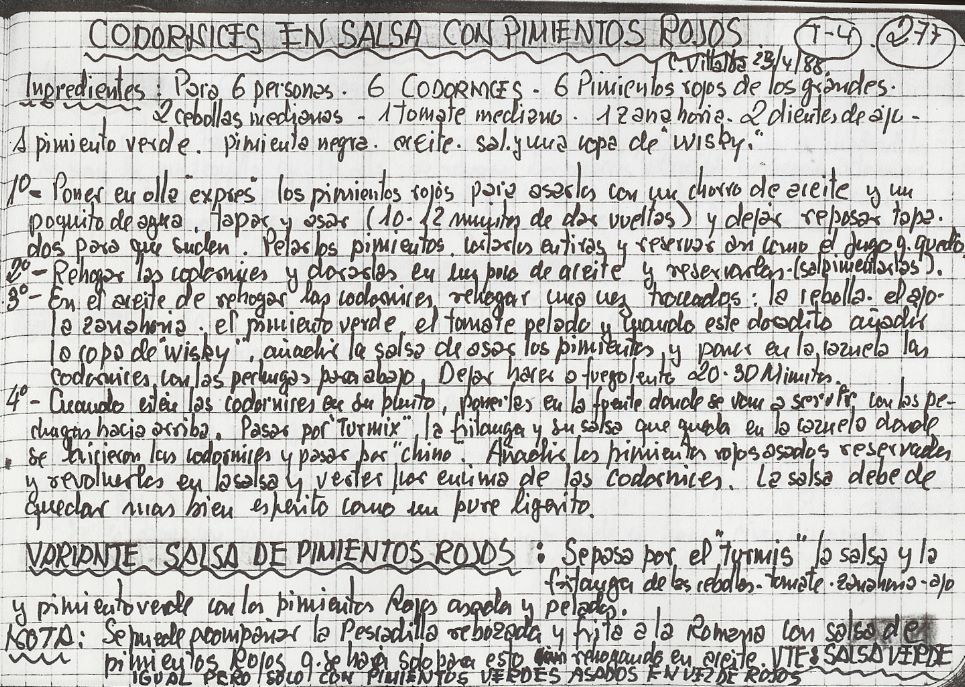 CODORNICES EN SALSA CON PIMIENTOS ROJOS T-4. 277
C. Villalba 23/4/88
Ingredientes: Para 6 personas. 6 CODORNICES - 6 Pimientos rojos de los grandes.
2 cebollas medianas - 1 tomate mediano. 1 zanahoria. 2 dientes de ajo -
1 pimiento verde. pimienta negra. aceite. sal. y una copa de "wisky."
1º- Poner en olla "expres" los pimientos rojos para asarlos con un chorro de aceite y un
poquito de agua. tapar y asar (10-12 minutos de dar vueltas) y dejar reposar tapa-
dos para que suden. Pelar los pimientos, cortarlos en tiras y reservar asi como el jugo q. quedo
2º- Rehogar las codornices y dorarlas en un poco de aceite y reservarlas - (salpimentarlas).
3º- En el aceite de rehogar las codornices, rehogar una vez troceados: la cebolla. el ajo-
la zanahoria. el pimiento verde el tomate pelado y cuando este doradito añadir
la copa de "wisky", añadir la salsa de asar los pimientos, y poner en la cazuela las
codornices, con las pechugas para abajo. Dejar hacer a fuego lento 20-30 Minutos.
4º- Cuando esten las codornices en su punto, ponerlas en la fuente donde se van a servir con las pe-
chugas hacia arriba. Pasar por "Turmix" la fritanga y su salsa que queda en la cazuela donde
se hicieron las codornices y pasar por "chino". Añadir los pimientos rojos asados reservados
y revolverlos en la salsa y verter por encima de las codornices. La salsa debe de
quedar mas bien espesito como un pure ligerito.
VARIANTE SALSA DE PIMIENTOS ROJOS: Se pasa por el "Turmis" la salsa y la
fritanga de las cebollas - tomate - zanahoria - ajo
y pimiento verde con los pimientos Rojos asados y pelados.
NOTA: Se puede acompañar la Pescadilla rebozada y frita a la Romana con salsa de
pimientos Rojos q. se haria solo para esto rehogando en aceite VTE: SALSA VERDE
IGUAL PERO SOLO CON PIMIENTOS VERDES ASADOS EN VEZ DE ROJOS